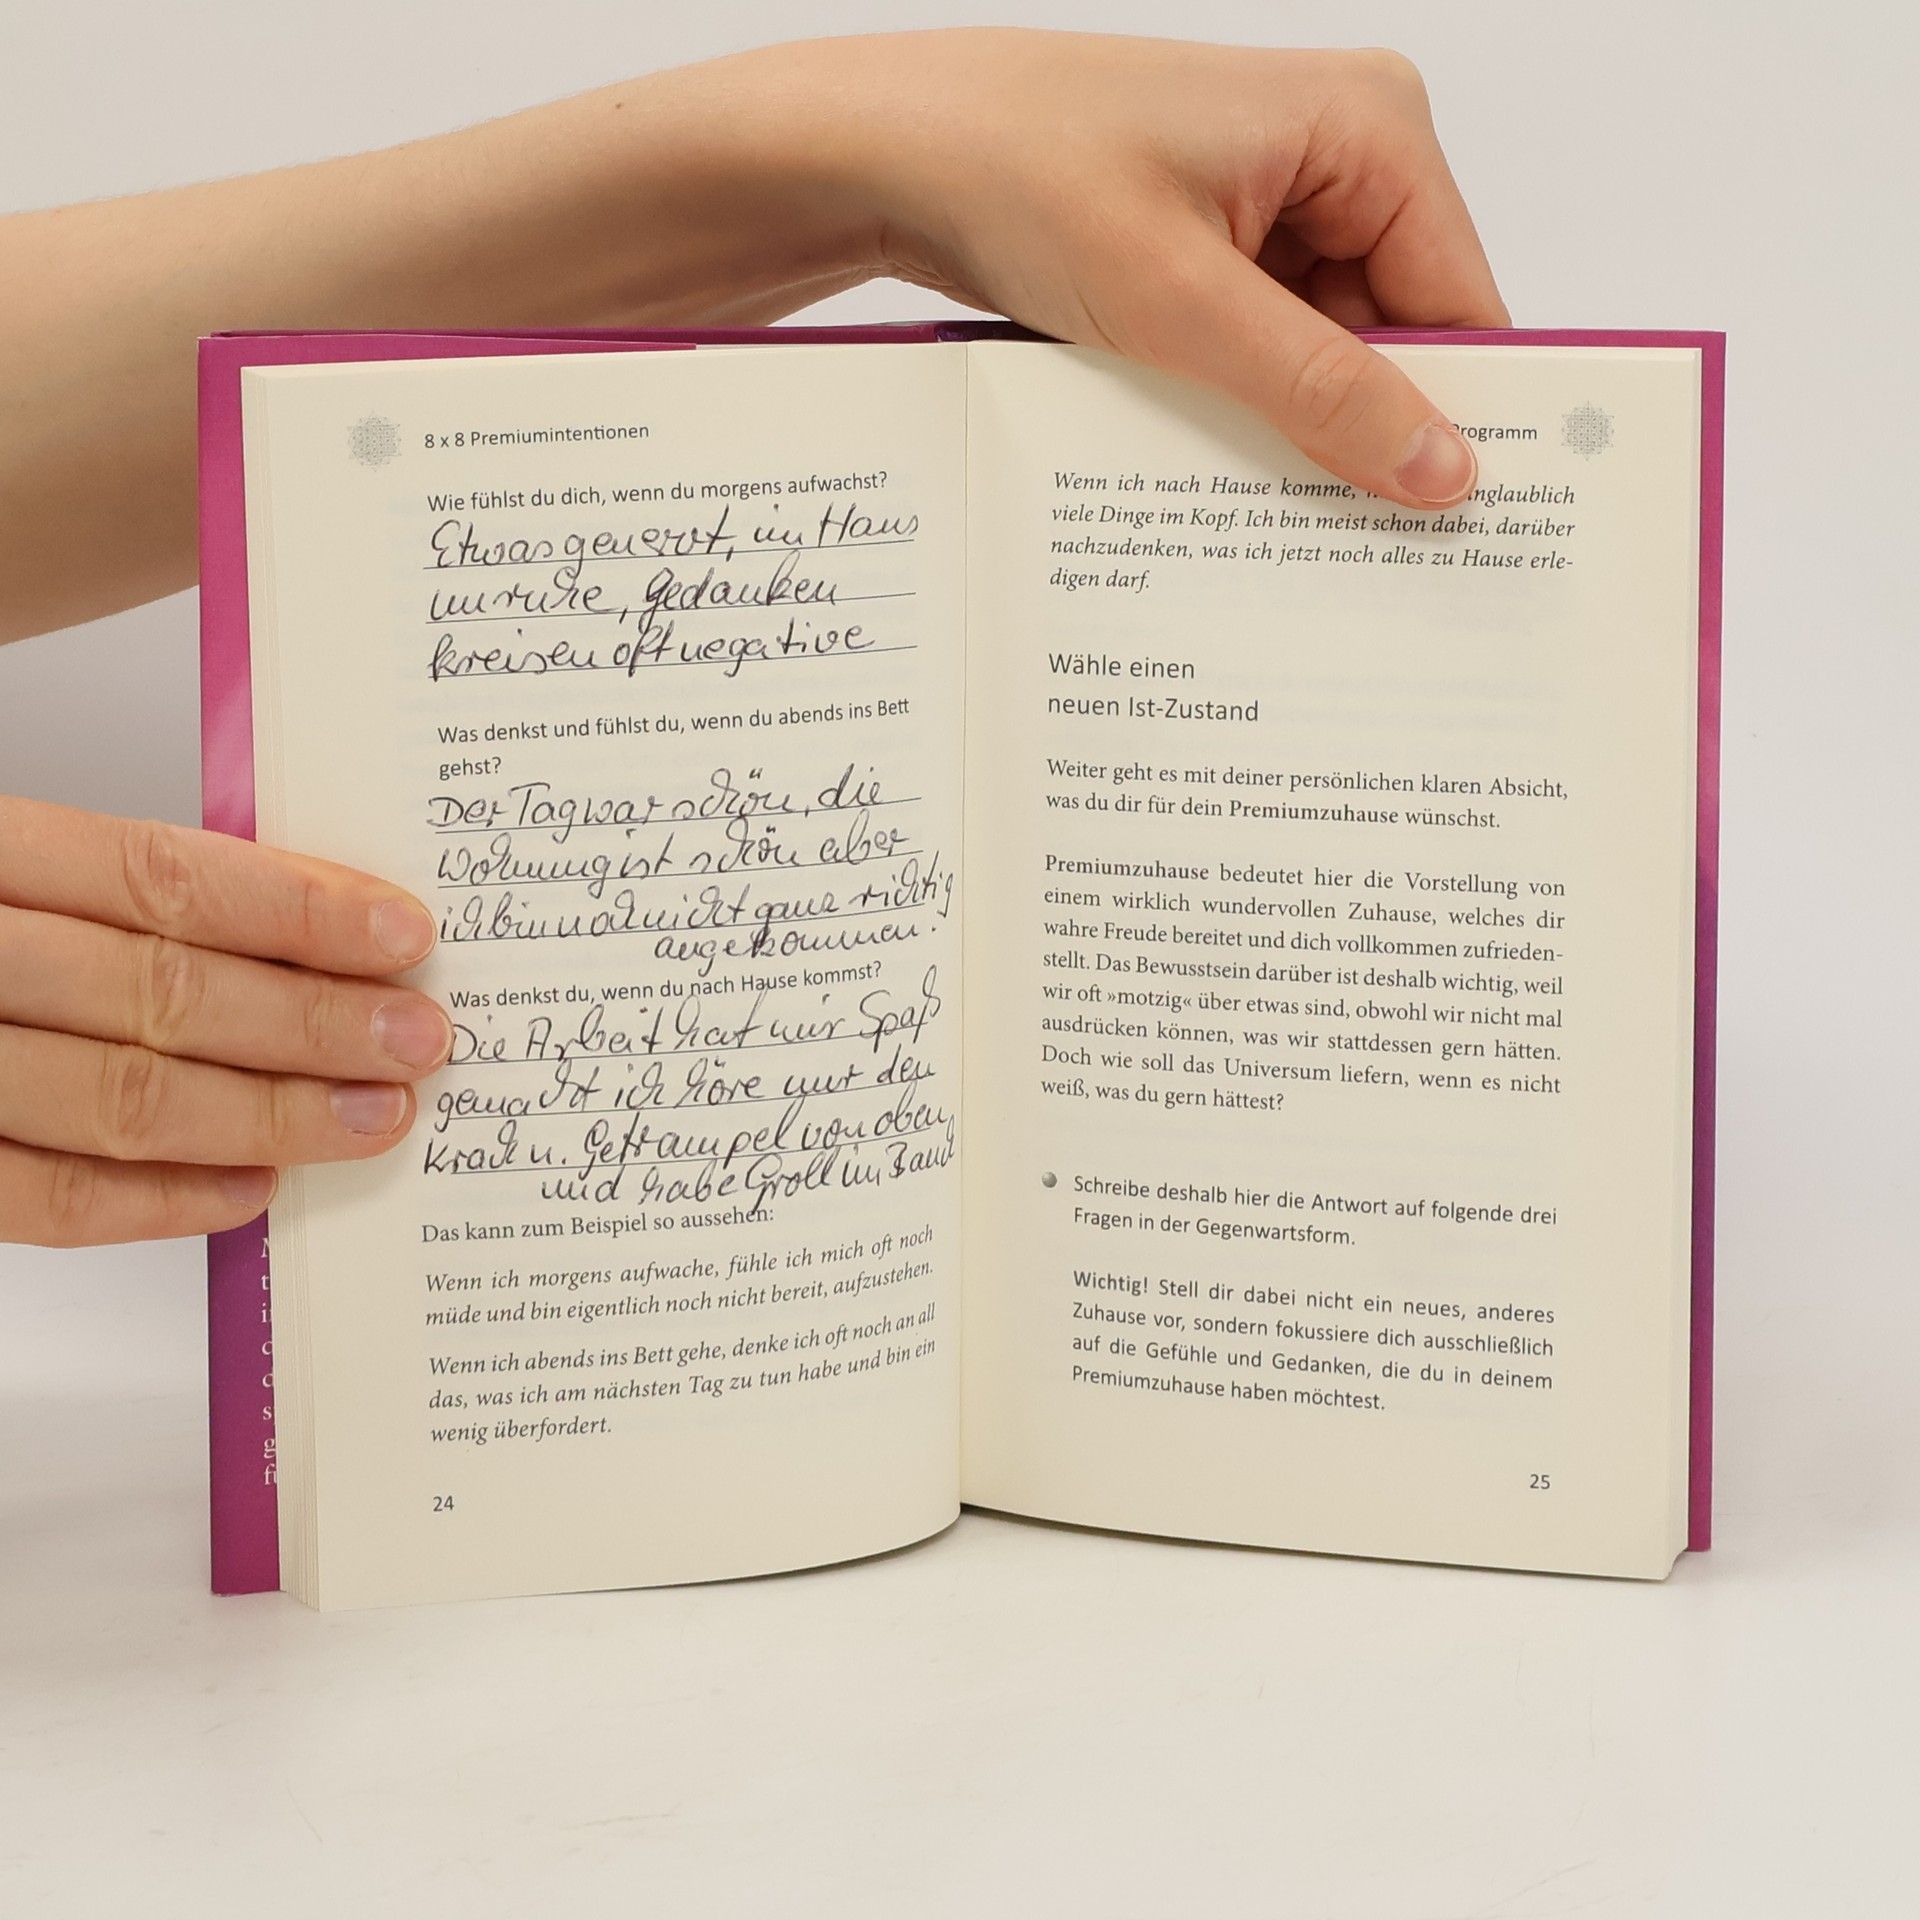 8 x 8 Premiumintentionen
Wie fühlst du dich, wenn du morgens aufwachst?
Etwas genervt, im Haus
unruhe, Gedanken
kreisen oft negative
Was denkst und fühlst du, wenn du abends ins Bett
gehst?
Der Tag war schön, die
Wohnung ist schön aber
ich bin noch nicht ganz richtig
angekommen.
Was denkst du, wenn du nach Hause kommst?
Die Arbeit hat mir Spaß
gemacht ich höre nur den
Krach u. Getrampel von oben
und habe Groll im Bauch
Das kann zum Beispiel so aussehen:
Wenn ich morgens aufwache, fühle ich mich oft noch
müde und bin eigentlich noch nicht bereit, aufzustehen.
Wenn ich abends ins Bett gehe, denke ich oft noch an all
das, was ich am nächsten Tag zu tun habe und bin ein
wenig überfordert.
24
Programm
Wenn ich nach Hause komme, unglaublich
viele Dinge im Kopf. Ich bin meist schon dabei, darüber
nachzudenken, was ich jetzt noch alles zu Hause erle-
digen darf.
Wähle einen
neuen Ist-Zustand
Weiter geht es mit deiner persönlichen klaren Absicht,
was du dir für dein Premiumzuhause wünschst.
Premiumzuhause bedeutet hier die Vorstellung von
einem wirklich wundervollen Zuhause, welches dir
wahre Freude bereitet und dich vollkommen zufrieden-
stellt. Das Bewusstsein darüber ist deshalb wichtig, weil
wir oft »motzig« über etwas sind, obwohl wir nicht mal
ausdrücken können, was wir stattdessen gern hätten.
Doch wie soll das Universum liefern, wenn es nicht
weiß, was du gern hättest?
Schreibe deshalb hier die Antwort auf folgende drei
Fragen in der Gegenwartsform.
Wichtig! Stell dir dabei nicht ein neues, anderes
Zuhause vor, sondern fokussiere dich ausschließlich
auf die Gefühle und Gedanken, die du in deinem
Premiumzuhause haben möchtest.
25